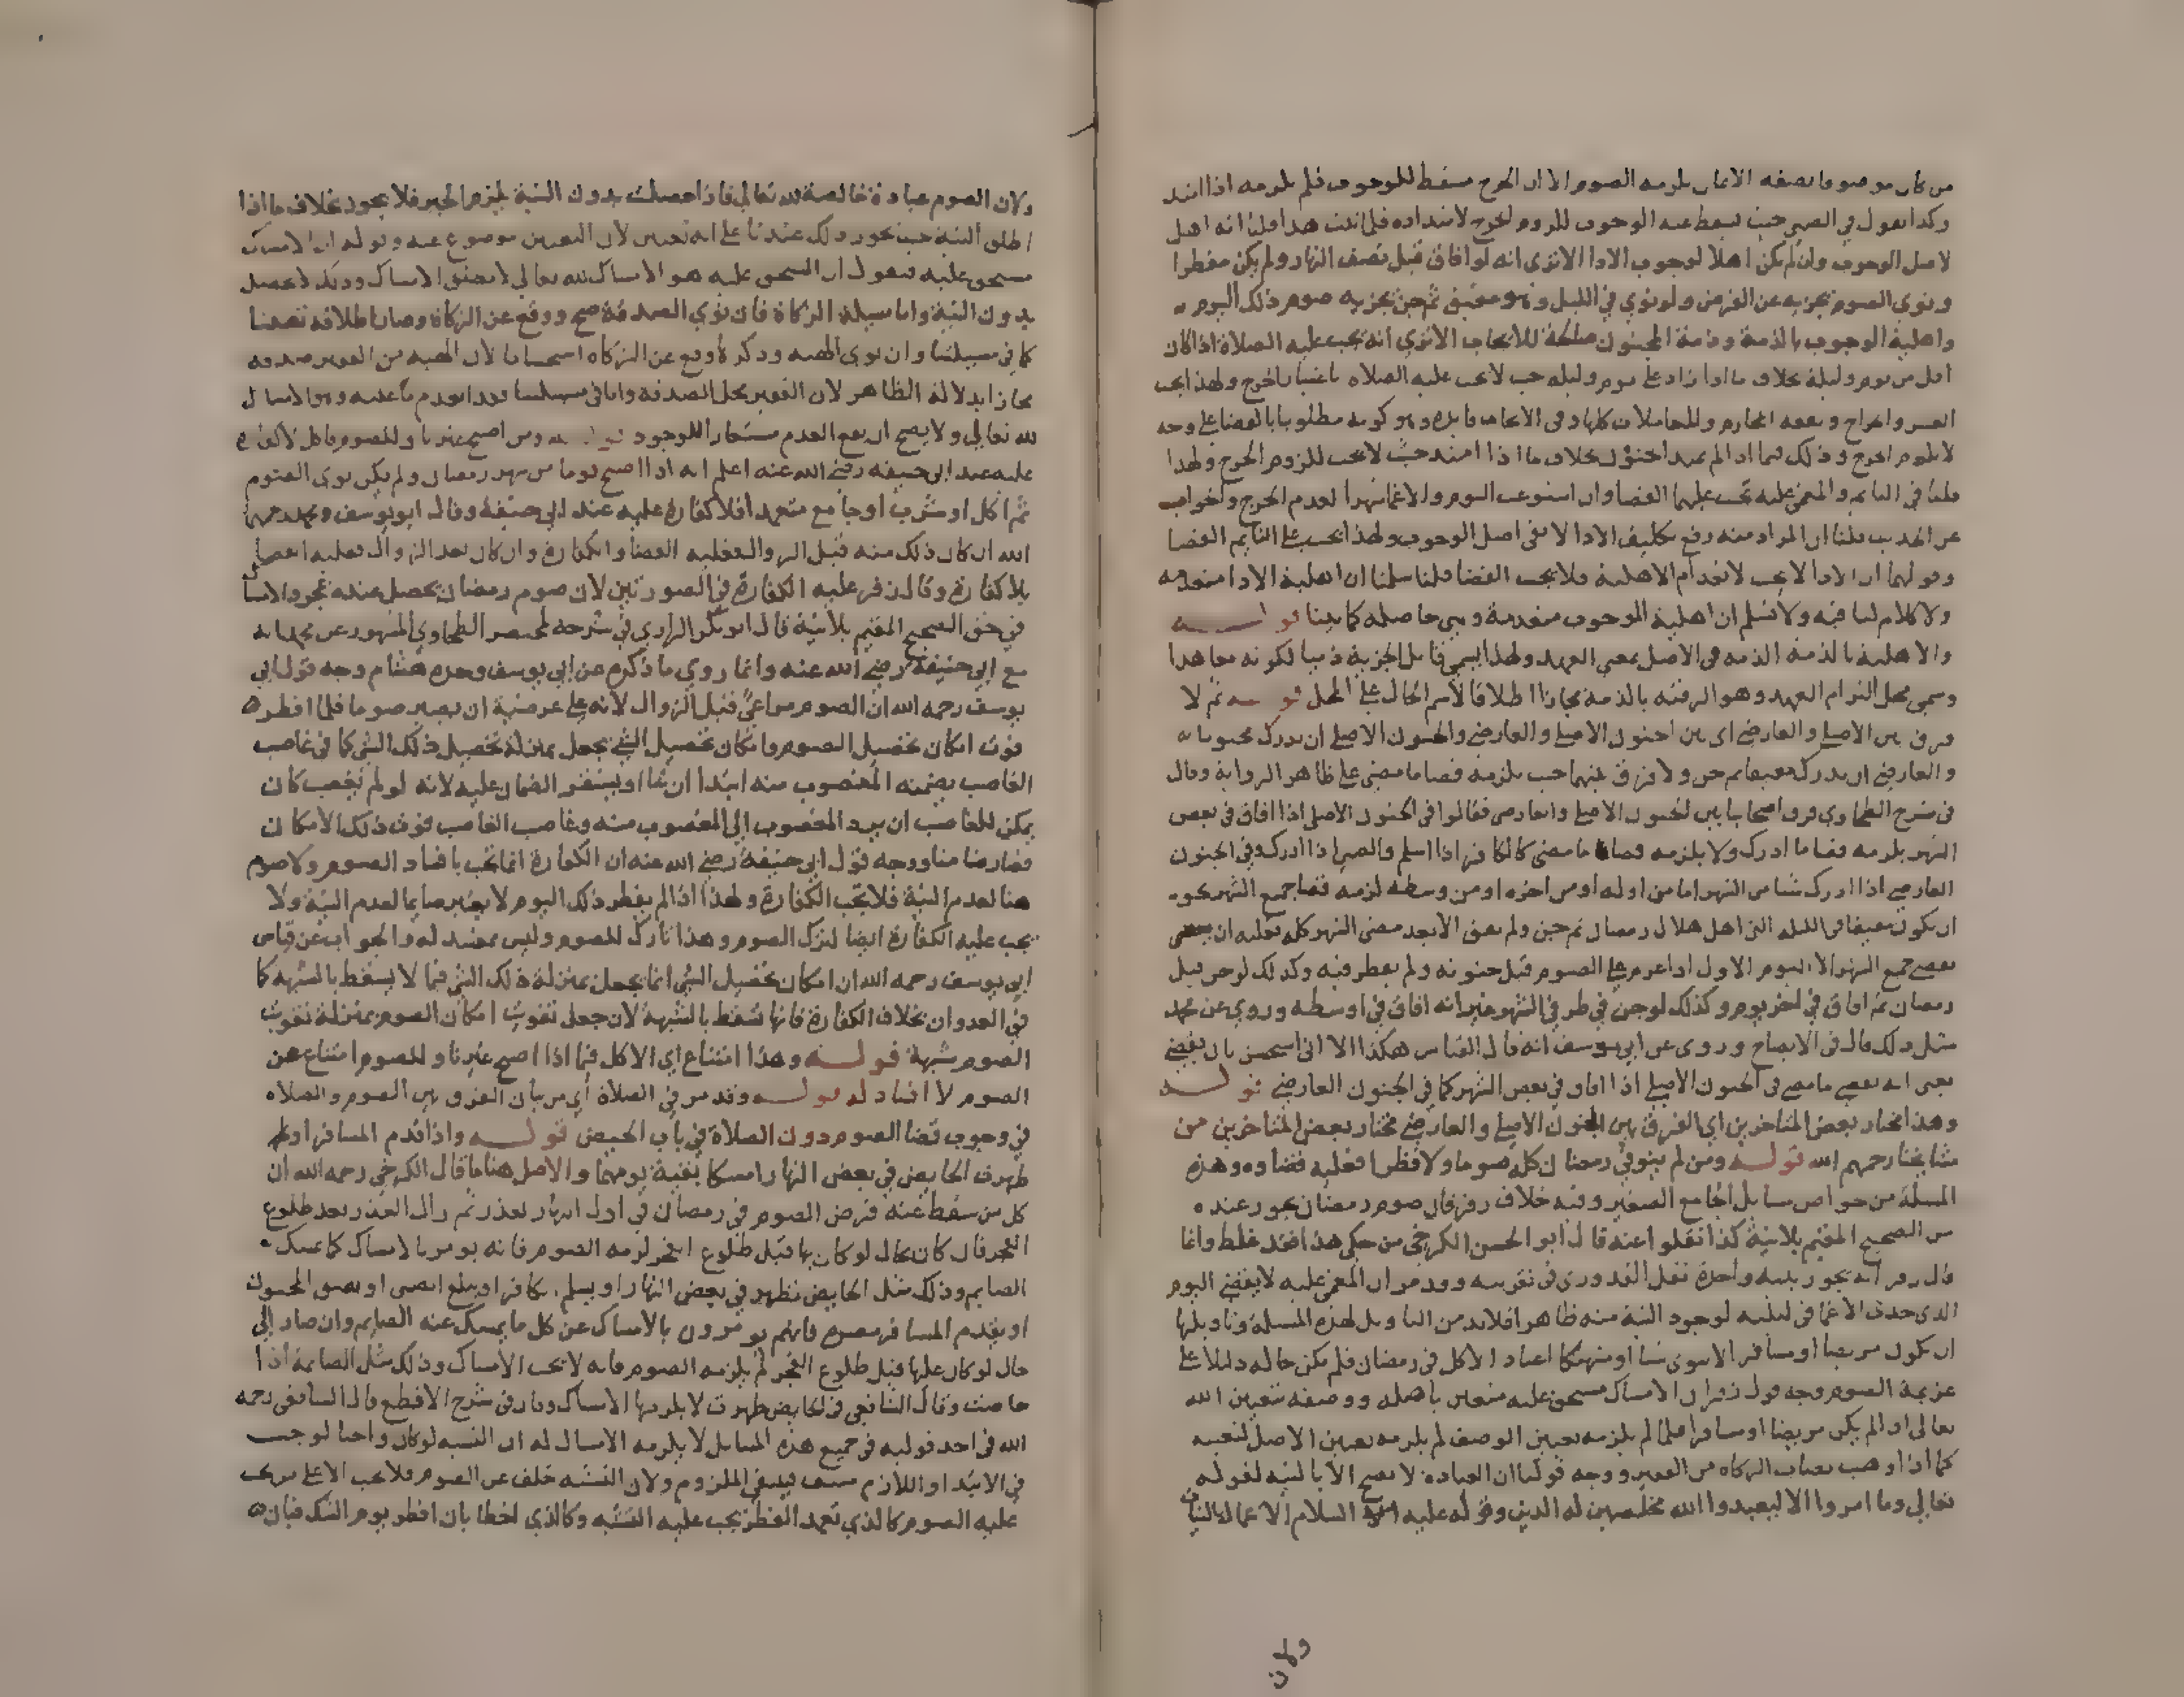 من كان موصوفا بصفة الايمان يلزمه الصوم الا ان الحرج مسقط للوجوب فلم يلزمه اذا امتد
وكذا نقول في الصبي حيث سقط عنه الوجوب للزوم الحرج لامتداده فلما ثبت هذا قلنا انه اهل
لاصل الوجوب وان لم يكن اهلا لوجوب الادا الا ترى انه لو افاق قبل نصف النهار ولم يكن مفطرا
ونوى الصوم يجزيه عن الفرض ولو نوي في الليل وهو مفيق ثم جن يجزيه صوم ذلك اليوم
واهلية الوجوب بالذمة وذمة المجنون صالحة للايجاب الا ترى انه يجب عليه الصلاة اذا كان
اقل من يوم وليلة بخلاف ما اذا زاد على يوم وليلة حيث لا يجب عليه الصلاه باعتبار الحرج ولهذا يجب
العشر والخراج ونفقه المحارم وللمعاملات كلها وفي الايجاب فايده وهو كونه مطلوبا بالقضا على وجه
لا يلزم الحرج وذلك فيما اذا لم يمتد الجنون بخلاف ما اذا امتد حيث لا يجب للزوم الحرج ولهذا
قلنا في النايم والمغمى عليه يجب عليهما القضا وان استوعب النوم والاغما شهرا لعدم الحرج والجواب
عن الحديث قلنا ان المراد منه رفع تكليف الادا لا نفي اصل الوجوب ولهذا يجب على النايم القضا
وقولهما ان الادا لا يجب لانعدام الاهلية فلا يجب القضا قلنا سلمنا ان اهلية الادا منعدمه
ولا كلام لنا فيه ولا نسلم ان اهلية الوجوب منعدمة وهي حاصله كما بينا قوله
والاهلية بالذمة الذمه في الاصل بمعنى العهد ولهذا يسمى قابل الجزية ذميا لكونه معاهدا
وسمى محل التزام العهد وهو الرقبه بالذمه مجازا اطلاقا لاسم الحال على المحل قوله ثم لا
فرق بين الاصلي والعارضي اي بين الجنون الاصلي والعارضي والجنون الاصلي ان يدرك مجنونا
والعارضي ان يدرك مفيقا ثم جن ولا فرق بينهما حيث يلزمه قضا ما مضى على ظاهر الرواية وقال
في شرح الطحاوي فرق اصحابنا بين الجنون الاصلي والعارضي فقالوا في الجنون الاصلي اذا افاق في بعض
الشهر يلزمه قضا ما ادرك ولا يلزمه قضا ما مضى كالكافر اذا اسلم والصبي اذا ادرك وفي الجنون
العارضي اذا ادرك شيا من الشهر اما من اوله او من اخره او من وسطه لزمه قضا جميع الشهر نحو
ان يكون مفيقا في الليله التي اهل هلال رمضان ثم جن ولم يفق الا بعد مضى الشهر كله فعليه ان يقضي
يقضي جميع الشهر الا اليوم الاول اذا عزم على الصوم قبل جنونه ولم يفطر فيه وكذلك لو جن قبل
رمضان ثم افاق في اخر يوم وكذلك لو جن في طرفي الشهر غير انه افاق في اوسطه وروي عن محمد
مثل ذلك قال في الايضاح وروى عن ابي يوسف انه قال القياس هكذا الا اني استحسن بان يقضي
يعني انه يقضي ما مضى في الجنون الاصلي اذا افاق في بعض الشهر كما في الجنون العارضي قوله
وهذا مختار بعض المتاخرين اي الفرق بين الجنون الاصلي والعارضي مختار بعض المتاخرين من
مشايخنا رحمهم الله قوله ومن لم ينو في رمضان كله صوما ولا فطرا فعليه قضاوه وهذه
المسلة من خواص مسايل الجامع الصغير وفيه خلاف زفر فان صوم رمضان يجوز عنده
من الصحيح المقيم بلا نية كذا نقلوا عنه قال ابو الحسن الكرخي من حكى هذا فقد غلط وانما
قال زفر انه يجوز بنيه واحدة نقل القدوري في تقريبه وقد مر ان المغمى عليه لا يقضي اليوم
الذي حدث الاغما في ليلته لوجود النية منه ظاهرا فلا بد من التاويل لهذه المسلة وتاويلها
ان يكون مريضا او مسافرا لا ينوى شيا او منهمكا اعتاد الاكل في رمضان فلم يكن حاله دليلا على
عزيمة الصوم وجه قول زفر ان الامساك مستحق عليه متعين باصله ووصفه بتعيين الله
تعالى اذا لم يكن مريضا او مسافرا فلما لم يلزمه تعيين الوصف لم يلزمه تعيين الاصل لتعينه
كما اذا وهب نصاب الزكاه من الفقير ووجه قولنا ان العبادة لا تصح الا بالنيه لقوله
تعالى وما امروا الا ليعبدوا الله مخلصين له الدين وقوله عليه السلام الاعمال بالنيات
ولان
ولان الصوم عبادة خالصة لله تعالى فاذا حصلت بدون النية لزم الجبر فلا يجوز بخلاف ما اذا
اطلق النية حيث يجوز ذلك عندنا على انه تعيين لان التعيين موضوع عنه وقوله ان الامساك
مستحق عليه فنقول ان المستحق عليه هو الامساك لله تعالى لا مطلق الامساك وذلك لا يحصل
بدون النية واما مسيلة الزكاة فان نوي الصدقة صح ووقع عن الزكاة وصار اطلاقه تعيينا
كما في مسيلتنا وان نوى الهبه وذكره وقع عن الزكاه استحسانا لان الهبه من الفقير صدقه
مجازا بدلالة الظاهر لان الفقير محل الصدقة واما في مسيلتنا فقد انعدم ما عليه وهو الامساك
لله تعالى ولا يصح ان يقع العدم مستعارا للوجود قوله ومن اصبح غير ناو للصوم فاكل لا كفارة
عليه عند ابي حنيفه رضي الله عنه اعلم انه اذا اصبح يوما من شهر رمضان ولم يكن نوى الصوم
ثم اكل او شرب او جامع متعمدا فلا كفارة عليه عند ابي حنيفة وقال ابو يوسف ومحمد رحمهما
الله ان كان ذلك منه قبل الزوال فعليه القضا والكفارة وان كان بعد الزوال فعليه القضا
بلا كفارة وقال زفر عليه الكفارة في الصورتين لان صوم رمضان يحصل عنده بمجرد الامساك
في حق الصحيح المقيم بلا نية قال ابو بكر الرازي في شرحه لمختصر الطحاوي المشهور عن محمد انه
مع ابي حنيفة رضي الله عنه وانما روي ما ذكره عن ابي يوسف وحده هشام وجه قول ابي
يوسف رحمه الله ان الصوم مراعى قبل الزوال لانه على عرضية ان يصير صوما فلما افطر
فوت امكان تحصيل الصوم وامكان تحصيل الشي يجعل بمنزلة تحصيل ذلك الشي كما في غاصب
الغاصب يضمنه المغصوب منه ابتدا ان شا او يستقر الضمان عليه لانه لو لم يغصب كان
يمكن للغاصب ان يرد المغصوب الي المغصوب منه وغاصب الغاصب فوت ذلك الامكان
فصار ضامنا ووجه قول ابي حنيفة رضي الله عنه ان الكفارة انما تجب بافساد الصوم ولا صوم
هنا لعدم النية فلا تجب الكفارة ولهذا اذا لم يفطر ذلك اليوم لا يصير صايما لعدم النية ولا
يجب عليه الكفارة ايضا لترك الصوم وهذا تارك للصوم وليس بمفسد له والجواب عن قياس
ابي يوسف رحمه الله ان امكان تحصيل الشي انما يجعل بمنزلة ذلك الشي فيما لا يسقط بالشبهه كما
في العدوان بخلاف الكفارة فانها تسقط بالشبهة لان جعل تفويت امكان الصوم بمنزلة تفويت
الصوم شبهة قوله وهذا امتناع اي الاكل فيما اذا اصبح غير ناو للصوم امتناع عن
الصوم لا افساد له قوله وقد مر في الصلاة اي مر بيان الفرق بين الصوم والصلاه
في وجوب قضا الصوم دون الصلاة في باب الحيض قوله واذا قدم المسافر او
طهرت الحايض في بعض النهار امسكا بقية يومهما والاصل هنا ما قال الكرخي رحمه الله ان
كل من سقط عنه فرض الصوم في رمضان في اول النهار لعذر ثم زال العذر بعد طلوع
الفجر فان كان بحال لو كان بها قبل طلوع الفجر لزمه الصوم فانه يومر بالامساك كما يمسك
الصايم وذلك مثل الحايض تطهر في بعض النهار او يسلم الكافر او يبلغ الصبي او يفيق المجنون
او يقدم المسافر مصره فانهم يومرون بالامساك عن كل ما يمسك عنه الصايم وان صار الي
حال لو كان عليها قبل طلوع الفجر لم يلزمه الصوم فانه لا يجب الامساك وذلك مثل الصايمة اذا
حاضت وقال الشافعي في الحايض طهرت لا يلزمها الامساك وقال في شرح الاقطع قال الشافعي رحمه
الله في احد قوليه في جميع هذه المسايل لا يلزمه الامساك له ان التشبه لو كان واجبا لوجب
في الابتدا واللازم منتف فينتفي الملزوم ولان التشبه خلف عن الصوم فلا يجب الا على من يجب
عليه الصوم كالذي تعمد الفطر يجب عليه التشبه وكالذي اخطا بان افطر يوم الشك فبان